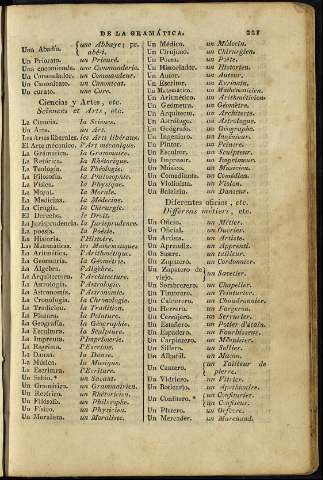 DE LA GRAMÁTICA. 221
Una Abadía. { une Abbaye; pr.
abé-i.
Un Priorato. un Prieuré.
Una encomienda. une Commanderie.
Un Comendador. un Commandeur.
Un Canonicato. un Canonicat.
Un curato. une Cure.
Ciencias y Artes, etc.
Sciences et Arts, etc.
La Ciencia. la Science.
Un Arte. un Art.
Las Artes liberales. les Arts libéraux.
El Arte mecánico. l'Art mécanique.
La Gramática. la Grammaire.
La Retórica. la Rhétorique.
La Teología. la Théologie.
La Filosofía. la Philosophie.
La Física. la Physique.
La Moral. la Morale.
La Medicina. la Médecine.
La Cirugía. la Chirurgie.
El Derecho. le Droit.
La Jurisprudencia. la Jurisprudence.
La poesía. la Poésie.
La Historia. l'Histoire.
Las Matemáticas. les Mathématiques
La Aritmética. l'Arithmétique.
La Geometría. la Géométrie.
La Algebra. l'Algèbre.
La Arquitectura. l'Architecture.
La Astrología. l'Astrologie.
La Astronomía. l'Astronomie.
La Cronología. la Chronologie.
La Traduccion. la Traduction.
La Pintura. la Peinture.
La Geografía. la Géographie.
La Escultura. la Sculpture.
La Imprenta. l'Imprimerie.
La Esgrima. l'Escrime.
La Danza. la Danse.
La Música. la Musique.
La Escritura. l'Ecriture.
Un Sabio. un Savant.
Un Gramático. un Grammairien.
Un Retórico. un Rhétoricien.
Un Filósofo. un Philosophe.
Un Físico. un Physicien.
Un Moralista. un Moraliste.
Un Médico. un Médecin.
Un Cirujano. un Chirurgien.
Un Poeta. un Poëte.
Un Historiador. un Historien.
Un Autor. un Auteur.
Un Escritor. un Ecrivain.
Un Matemático. un Mathématicien.
Un Aritmético. un Arithméticien
Un Geómetra. un Géomètre.
Un Arquitecto. un Architecte.
Un Astrólogo. un Astrologue.
Un Geógrafo. un Géographe.
Un Ingeniero. un Ingénieur.
Un Pintor. un Peintre.
Un Escultor. un Sculpteur.
Un Impresor. un Imprimeur.
Un Músico. un Musicien.
Un Comediante. un Comédien.
Un Violinista. un Violon.
Un Bailarin. un Danseur.
Diferentes oficios, etc.
Différens métiers, etc.
Un Oficio. un Métier.
Un Oficial. un Ouvrier.
Un Artista. un Artiste.
Un Aprendiz. un Apprenti.
Un Sastre. un tailleur.
Un Zapatero. un Cordonnier.
Un Zapatero de
viejo. } un Savetier.
Un Sombrerero. un Chapelier.
Un Tintorero. un Teinturier.
Un Calderero. un Chaudronnier.
Un Herrero. un Forgeron.
Un Cerrajero. un Serrurier.
Un Estañero. un Potier d'étain.
Un Espadero. un Fourbisseur.
Un Carpintero. un Ménuisier.
Un Sillero. un Sellier.
Un Albañil. un Maçon.
Un Cantero. { un Tailleur de
pierre.
Un Vidriero. un Vitrier.
Un Boticario. un Apothicaire.
Un Confitero. { un Confiturier.
un Confiseur.
Un Platero. un Orfèvre.
Un Mercader. un Marchand.